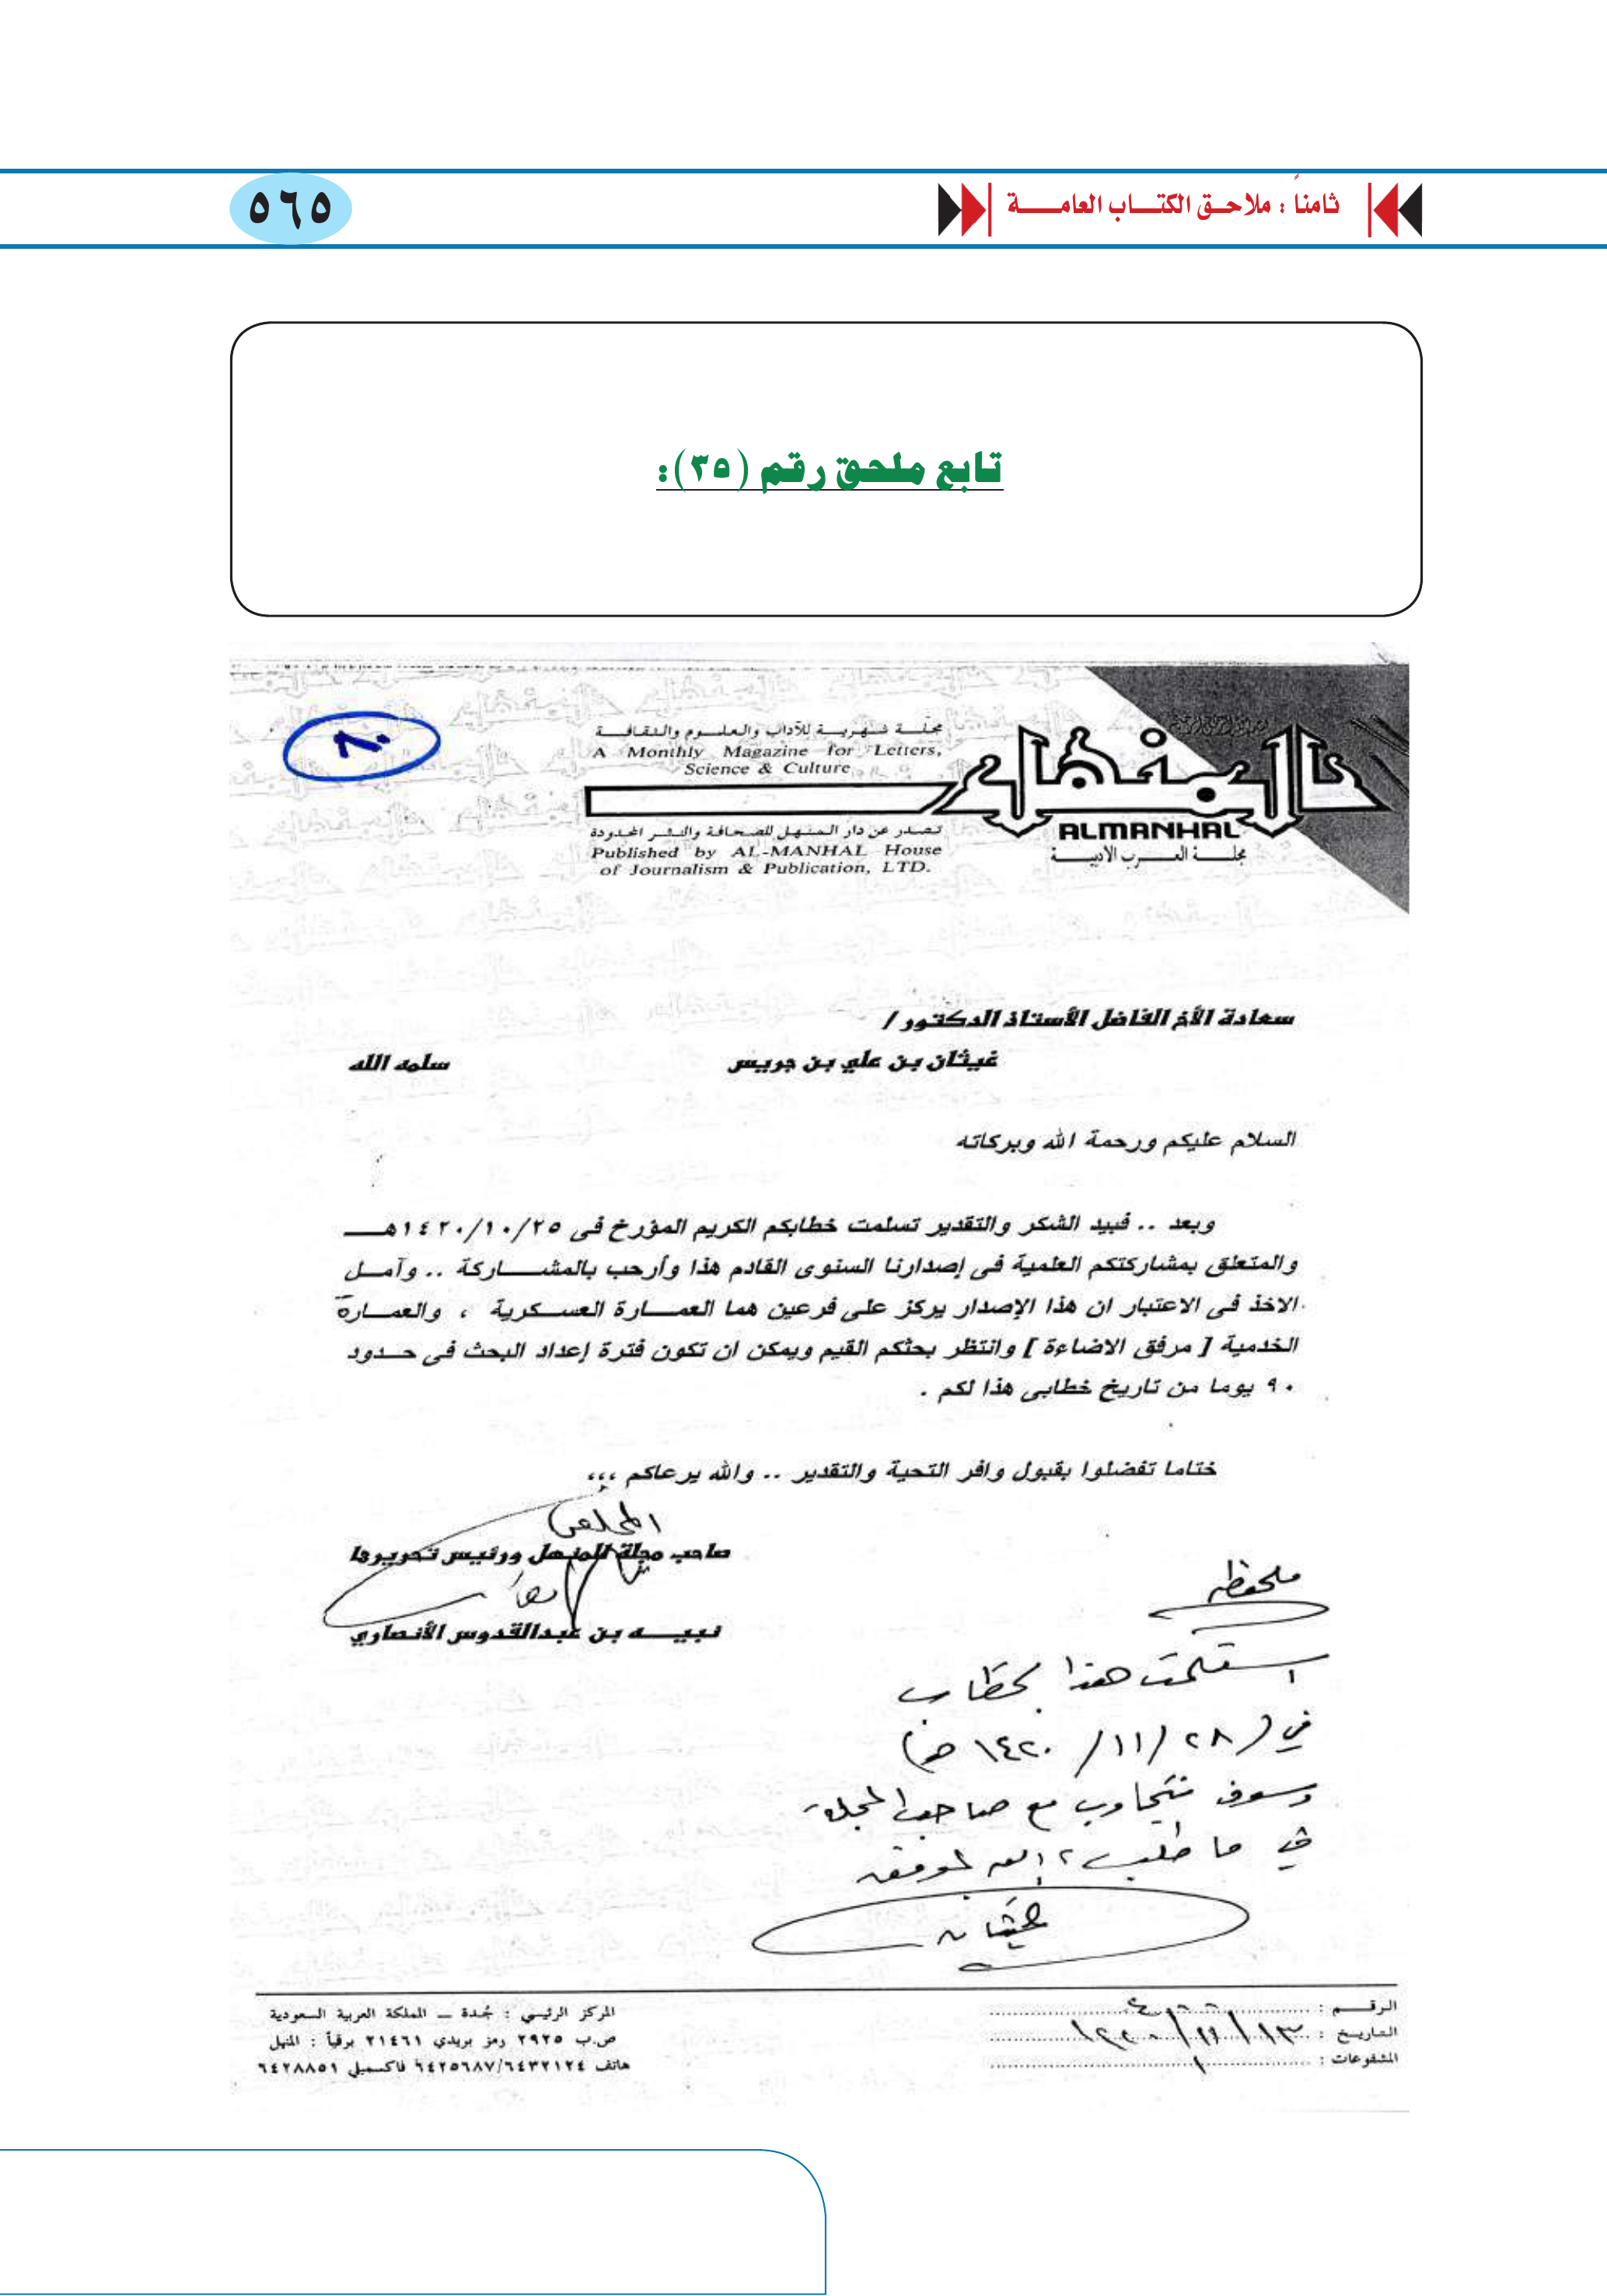 ثامناً : ملاحـق الكتـــاب العامـــــة
٥٦٥
تابع ملحق رقم (٣٥):
٨٠
مجلـة شـهـريـة للآداب والعلـوم والثقافـة
A Monthly Magazine for Letters,
Science & Culture
المنهل
ALMANHAL
مجلـــة العـــرب الادبيـــة
تـصـدر عن دار الـمـنـهـل للصـحـافـة والنشـر المحـدودة
Published by AL-MANHAL House
of Journalism & Publication, LTD.
سعادة الأخ الفاضل الأستاذ الدكتور /
غيثان بن علي بن جريس سلمه الله
السلام عليكم ورحمة الله وبركاته
وبعد .. فبيد الشكر والتقدير تسلمت خطابكم الكريم المؤرخ فى ١٤٢٠/١٠/٢٥هـــ
والمتعلق بمشاركتكم العلمية فى إصدارنا السنوى القادم هذا وأرحب بالمشـــاركة .. وآمـــل
الاخذ فى الاعتبار ان هذا الإصدار يركز على فرعين هما العمــارة العســكرية ، والعمــارة
الخدمية [ مرفق الاضاءة ] وانتظر بحثكم القيم ويمكن ان تكون فترة إعداد البحث فى حـــدود
٩٠ يوما من تاريخ خطابى هذا لكم .
ختاما تفضلوا بقبول وافر التحية والتقدير .. والله يرعاكم ،،،
المخلص
صاحب مجلة المنهل ورئيس تحريرها
نبيـــه بن عبدالقدوس الأنصاري
ملحوظة
استلمت هذا الخطاب
في (٢٨/ ١١/ ١٤٢٠هـ)
وسوف نتجاوب مع صاحب المجلة
في ما طلب، والله الموفق
غيثان
الرقـــم :
التاريـخ :
المشفوعات : ١
المركز الرئيسي : جُدة ــ المملكة العربية السعودية
ص.ب ٢٩٢٥ رمز بريدي ٢١٤٦١ برقياً : المنهل
هاتف ٦٤٣٢١٢٤/٦٤٢٥٦٨٧ فاكسميلي ٦٤٢٨٨٥١